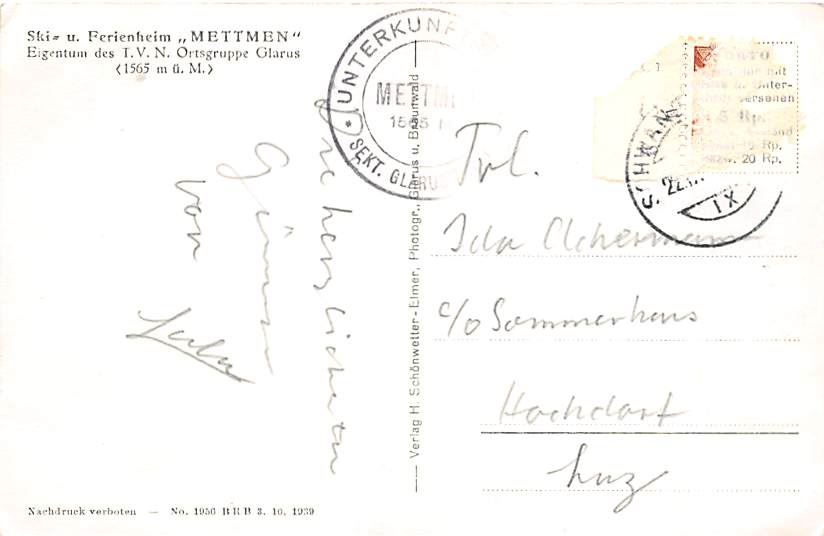 Ski= u. Ferienheim „METTMEN“
Eigentum des T.V.N. Ortsgruppe Glarus
(1565 m ü. M.)
UNTERKUNF
METTM
SEKT. GLARUS
Die herzlichsten
Grüsse
von
Verlag H. Schönwetter-Elmer, Photogr., Glarus u. Braunwald
PORTO
mit
u. Unter-
5 Rp.
Rp.
20 Rp.
SCHWAN
22.
IX
Frl.
Ida Achermann
c/o Sommerhaus
Hochdorf
Luz
Nachdruck verboten — No. 1956 BRB 3. 10. 1939